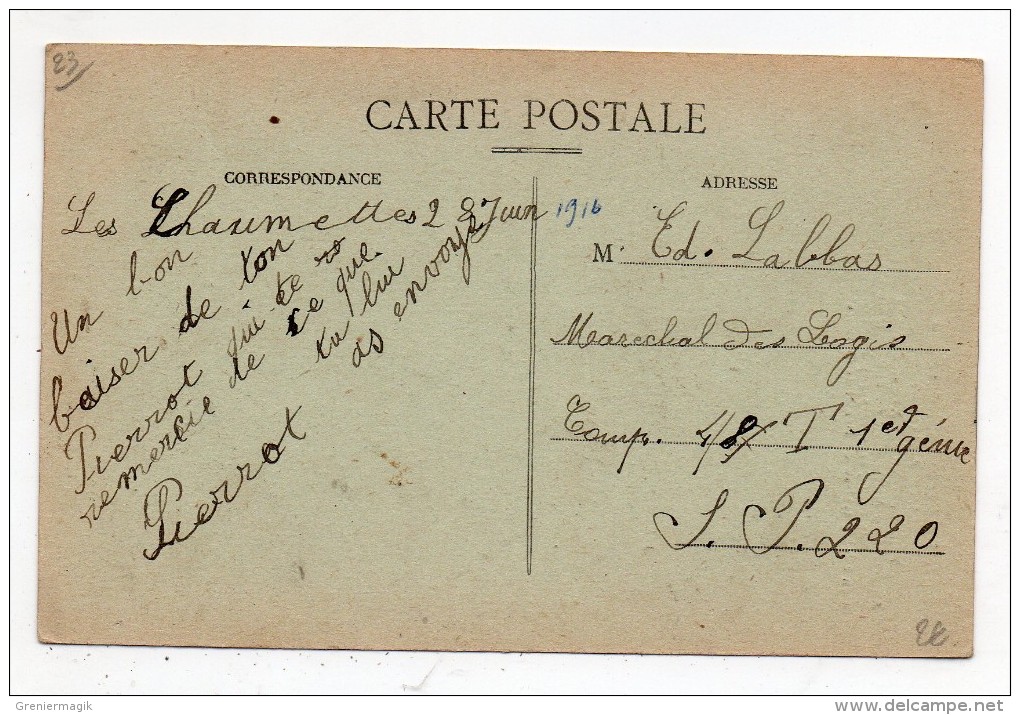 23
CARTE POSTALE
CORRESPONDANCE
Les Chaumettes 28 Juin 1916
Un bon
baiser de ton
Pierrot qui te
remercie de ce que
tu lui
as envoyé
Pierrot
ADRESSE
M Ed. Labbas
Marechal des Logis
Comp. 4/8 T 1er génie
S. P. 220
Greniermagik
delcampe.net